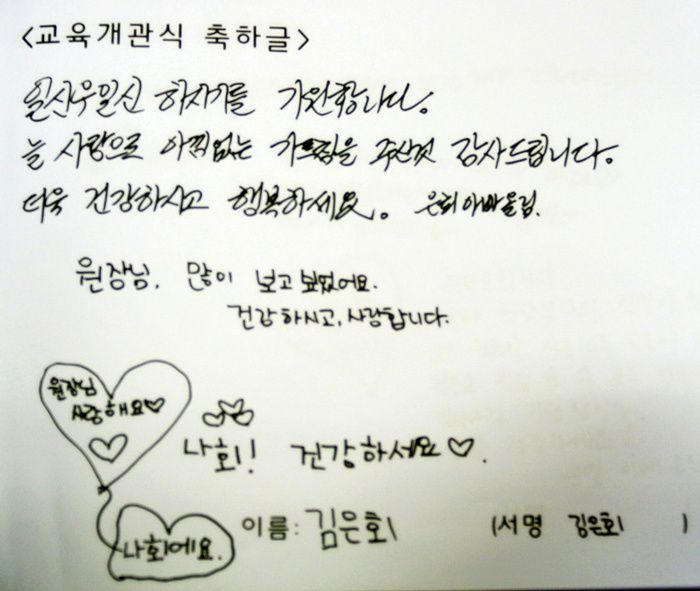 <교육개관식 축하글>
일신우일신 하시기를 기원합니다.
늘 사랑으로 아낌없는 가르침을 주신것 감사드립니다.
더욱 건강하시고 행복하세요. 은희아빠올림.
원장님, 많이 보고 싶었어요.
건강하시고, 사랑합니다.
원장님
사랑해요♡
나회! 건강하세요♡.
나회예요.
이름: 김은회 (서명 김은회 )